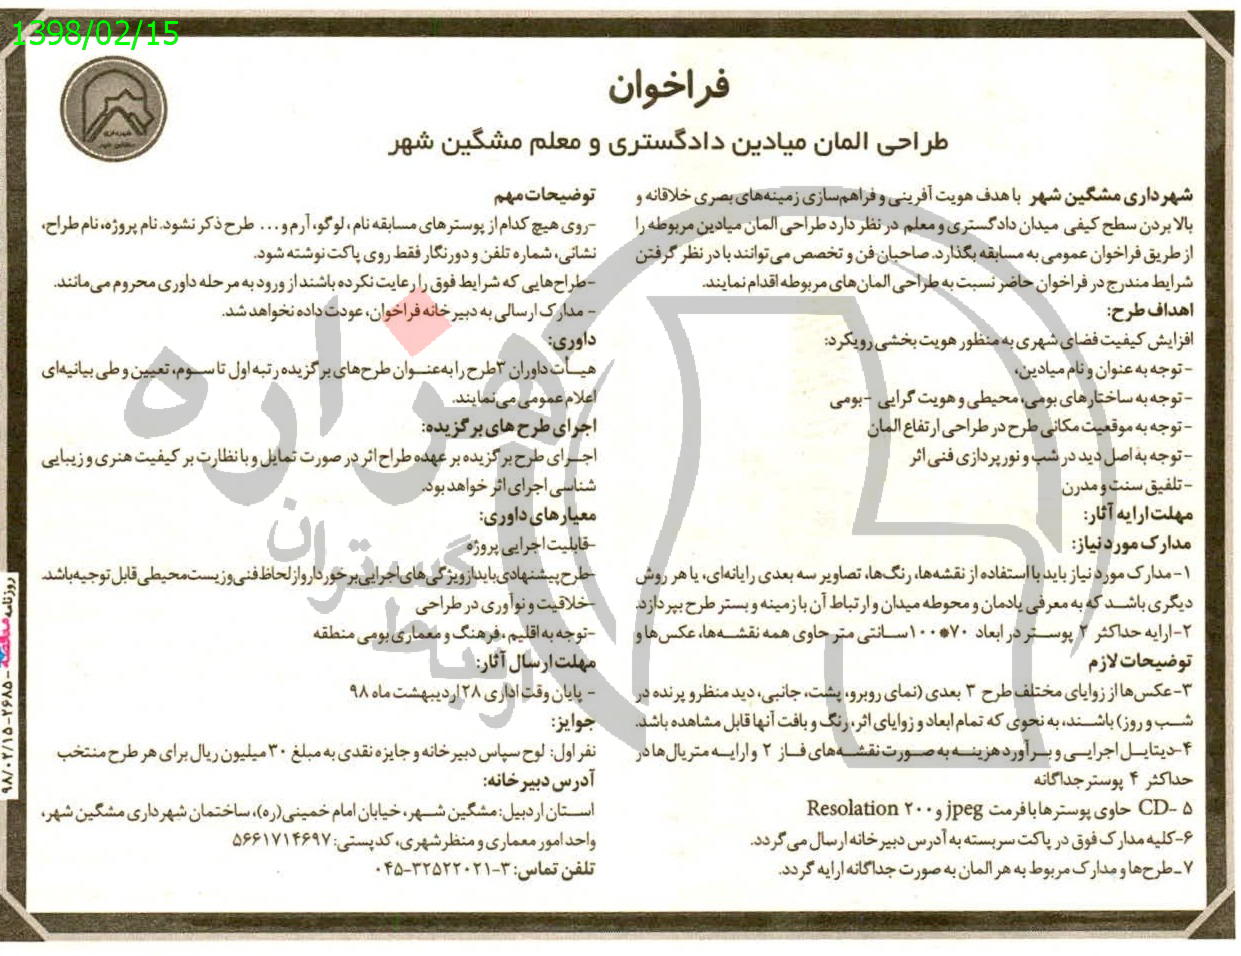 1398/02/15
فراخوان
طراحی المان میادین دادگستری و معلم مشگین شهر
شهرداری
مشگین شهر
شهرداری مشگین شهر با هدف هویت آفرینی و فراهم‌سازی زمینه‌های بصری خلاقانه و
بالا بردن سطح کیفی میدان دادگستری و معلم در نظر دارد طراحی المان میادین مربوطه را
از طریق فراخوان عمومی به مسابقه بگذارد. صاحبان فن و تخصص می‌توانند با در نظر گرفتن
شرایط مندرج در فراخوان حاضر نسبت به طراحی المان‌های مربوطه اقدام نمایند.
اهداف طرح:
افزایش کیفیت فضای شهری به منظور هویت بخشی رویکرد:
- توجه به عنوان و نام میادین،
-توجه به ساختارهای بومی، محیطی و هویت گرایی -بومی
-توجه به موقعیت مکانی طرح در طراحی ارتفاع المان
-توجه به اصل دید در شب و نورپردازی فنی اثر
-تلفیق سنت و مدرن
مهلت ارایه آثار:
مدارک مورد نیاز:
۱-مدارک مورد نیاز باید با استفاده از نقشه‌ها، رنگ‌ها، تصاویر سه بعدی رایانه‌ای، یا هر روش
دیگری باشد که به معرفی یادمان و محوطه میدان و ارتباط آن با زمینه و بستر طرح بپردازد.
۲-ارایه حداکثر ۲ پوستر در ابعاد ۷۰*۱۰۰ سانتی متر حاوی همه نقشه‌ها، عکس‌ها و
توضیحات لازم
۳-عکس‌ها از زوایای مختلف طرح ۳ بعدی (نمای روبرو، پشت، جانبی، دید منظر و پرنده در
شب و روز) باشند، به نحوی که تمام ابعاد و زوایای اثر، رنگ و بافت آنها قابل مشاهده باشد.
۴-دیتایل اجرایی و برآورد هزینه به صورت نقشه‌های فاز ۲ و ارایه متریال‌ها در
حداکثر ۴ پوستر جداگانه
۵ -CD حاوی پوسترها با فرمت jpeg و ۲۰۰ Resolation
۶-کلیه مدارک فوق در پاکت سربسته به آدرس دبیرخانه ارسال می گردد.
۷-طرح‌ها و مدارک مربوط به هر المان به صورت جداگانه ارایه گردد.
توضیحات مهم
-روی هیچ کدام از پوسترهای مسابقه نام، لوگو، آرم و... طرح ذکر نشود. نام پروژه، نام طراح،
نشانی، شماره تلفن و دورنگار فقط روی پاکت نوشته شود.
-طراح‌هایی که شرایط فوق را رعایت نکرده باشند از ورود به مرحله داوری محروم می‌مانند.
- مدارک ارسالی به دبیرخانه فراخوان، عودت داده نخواهد شد.
داوری:
هیـأت داوران ۳طرح را به‌عنوان طرح‌های برگزیده رتبه اول تا سوم، تعیین و طی بیانیه‌ای
اعلام عمومی می‌نمایند.
اجرای طرح های برگزیده:
اجرای طرح برگزیده بر عهده طراح اثر در صورت تمایل و با نظارت بر کیفیت هنری و زیبایی
شناسی اجرای اثر خواهد بود.
معیارهای داوری:
-قابلیت اجرایی پروژه
-طرح پیشنهادی باید از ویژگی های اجرایی برخوردار و از لحاظ فنی و زیست محیطی قابل توجیه باشد.
-خلاقیت و نوآوری در طراحی
-توجه به اقلیم ،فرهنگ و معماری بومی منطقه
مهلت ارسال آثار:
- پایان وقت اداری ۲۸ اردیبهشت ماه ۹۸
جوایز:
نفر اول: لوح سپاس دبیرخانه و جایزه نقدی به مبلغ ۳۰ میلیون ریال برای هر طرح منتخب
آدرس دبیرخانه:
استان اردبیل: مشگین شهر، خیابان امام خمینی(ره)، ساختمان شهرداری مشگین شهر،
واحد امور معماری و منظر شهری، کدپستی: ۵۶۶۱۷۱۴۶۹۷
تلفن تماس: ۳-۳۲۵۲۲۰۲۱-۰۴۵
هزاره
گستران
ارتباط
روزنامه مناقصه - ۲۶۸۵ - ۹۸/۰۲/۱۵